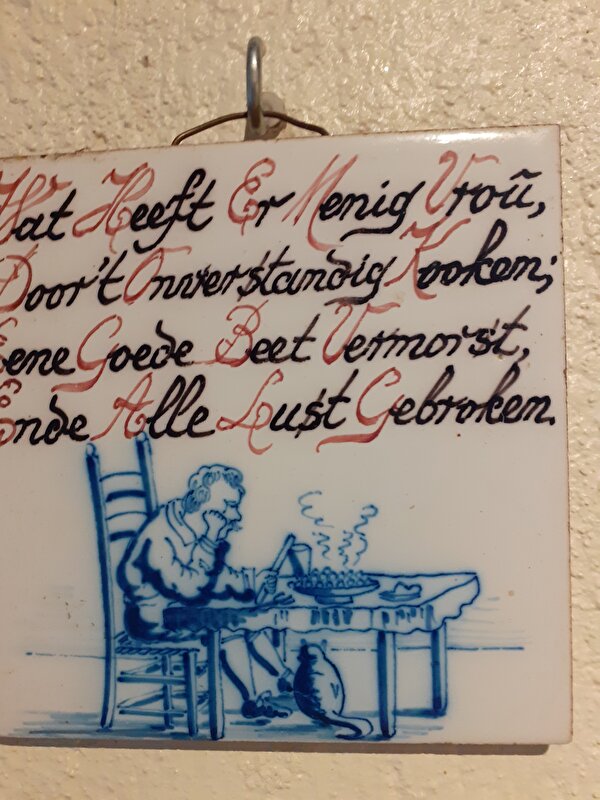 Wat Heeft Er Menig Vroũ,
Door't Onverstandig Kooken;
Eene Goede Beet Vermorst,
Ende Alle Lust Gebroken.